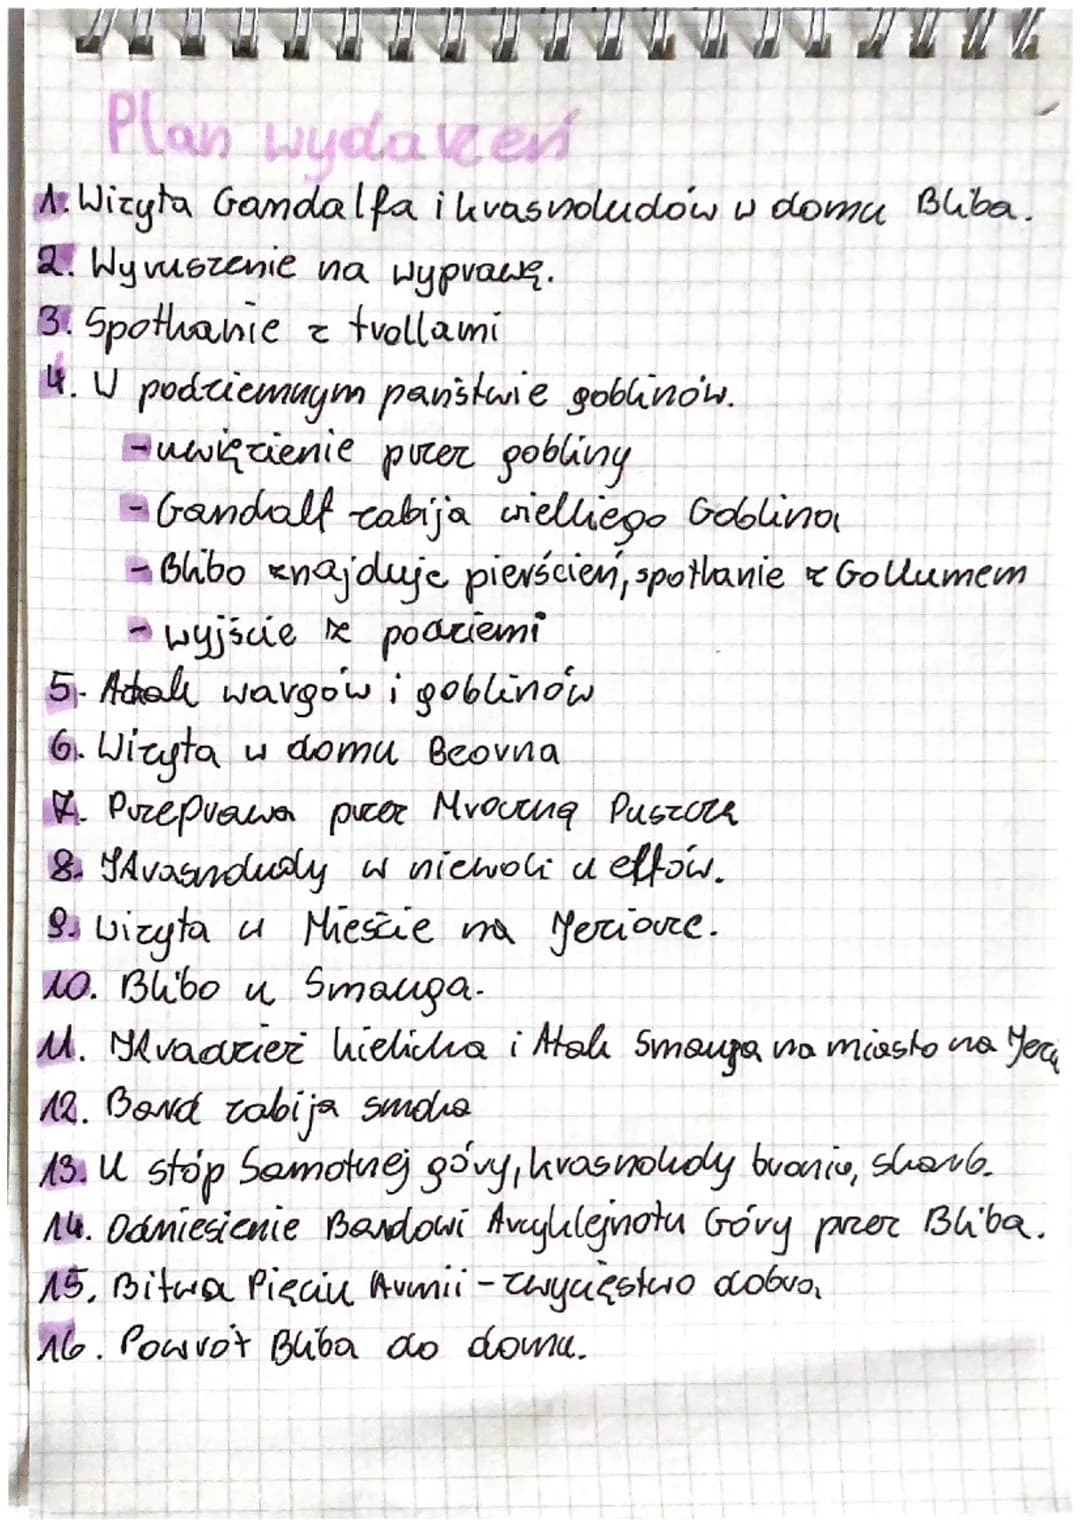 Plan wydarzeń
1. Wizyta Gandalfa i krasnoludów w domu Bliba.
2. Wyruszenie na wyprawę.
3. Spotkanie z trollami
4. W podziemnym państwie goblinów.
- uwięzienie przez gobliny
- Gandalf zabija wielkiego Goblina
- Blibo znajduje pierścień, spotkanie z Gollumem
- wyjście z podziemi
5. Atak wargów i goblinów
6. Wizyta w domu Beorna
7. Przeprawa przez Mroczną Puszczę
8. Krasnoludy w niewoli u elfów.
9. Wizyta w Mieście na Jeziorze.
10. Blibo u Smauga.
11. Kradzież kielicha i Atak Smauga na miasto na Jezi
12. Bard zabija smoka
13. U stóp Samotnej góry, krasnoludy bronią, skarb.
14. Odniesienie Bardowi Arcyklejnotu Góry przez Bliba.
15. Bitwa Pięciu Armii - zwycięstwo dobra,
16. Powrót Bliba do domu.